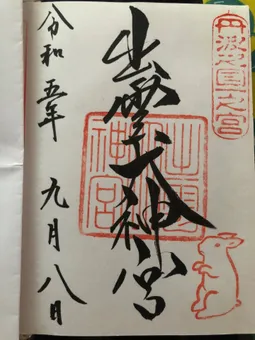 丹波國一之宮
出雲大神宮
出雲
神宮
令和五年 九月八日